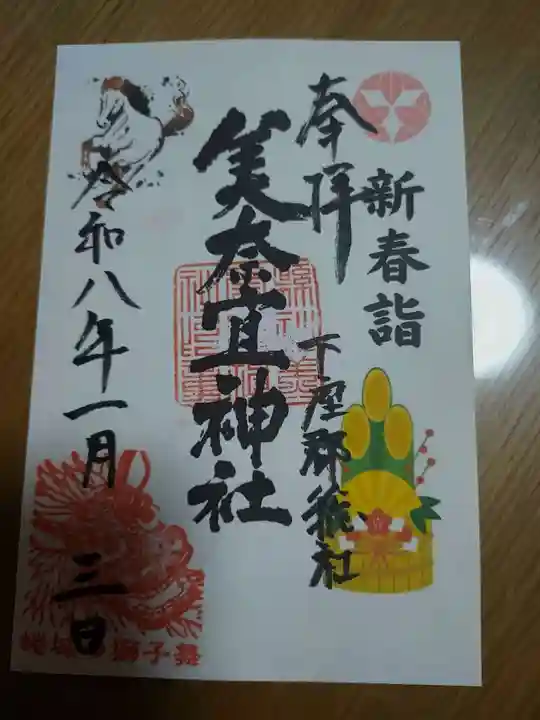 新春詣
奉拝
下座郡総社
美奈宜神社
令和八年一月 三日
獅子舞